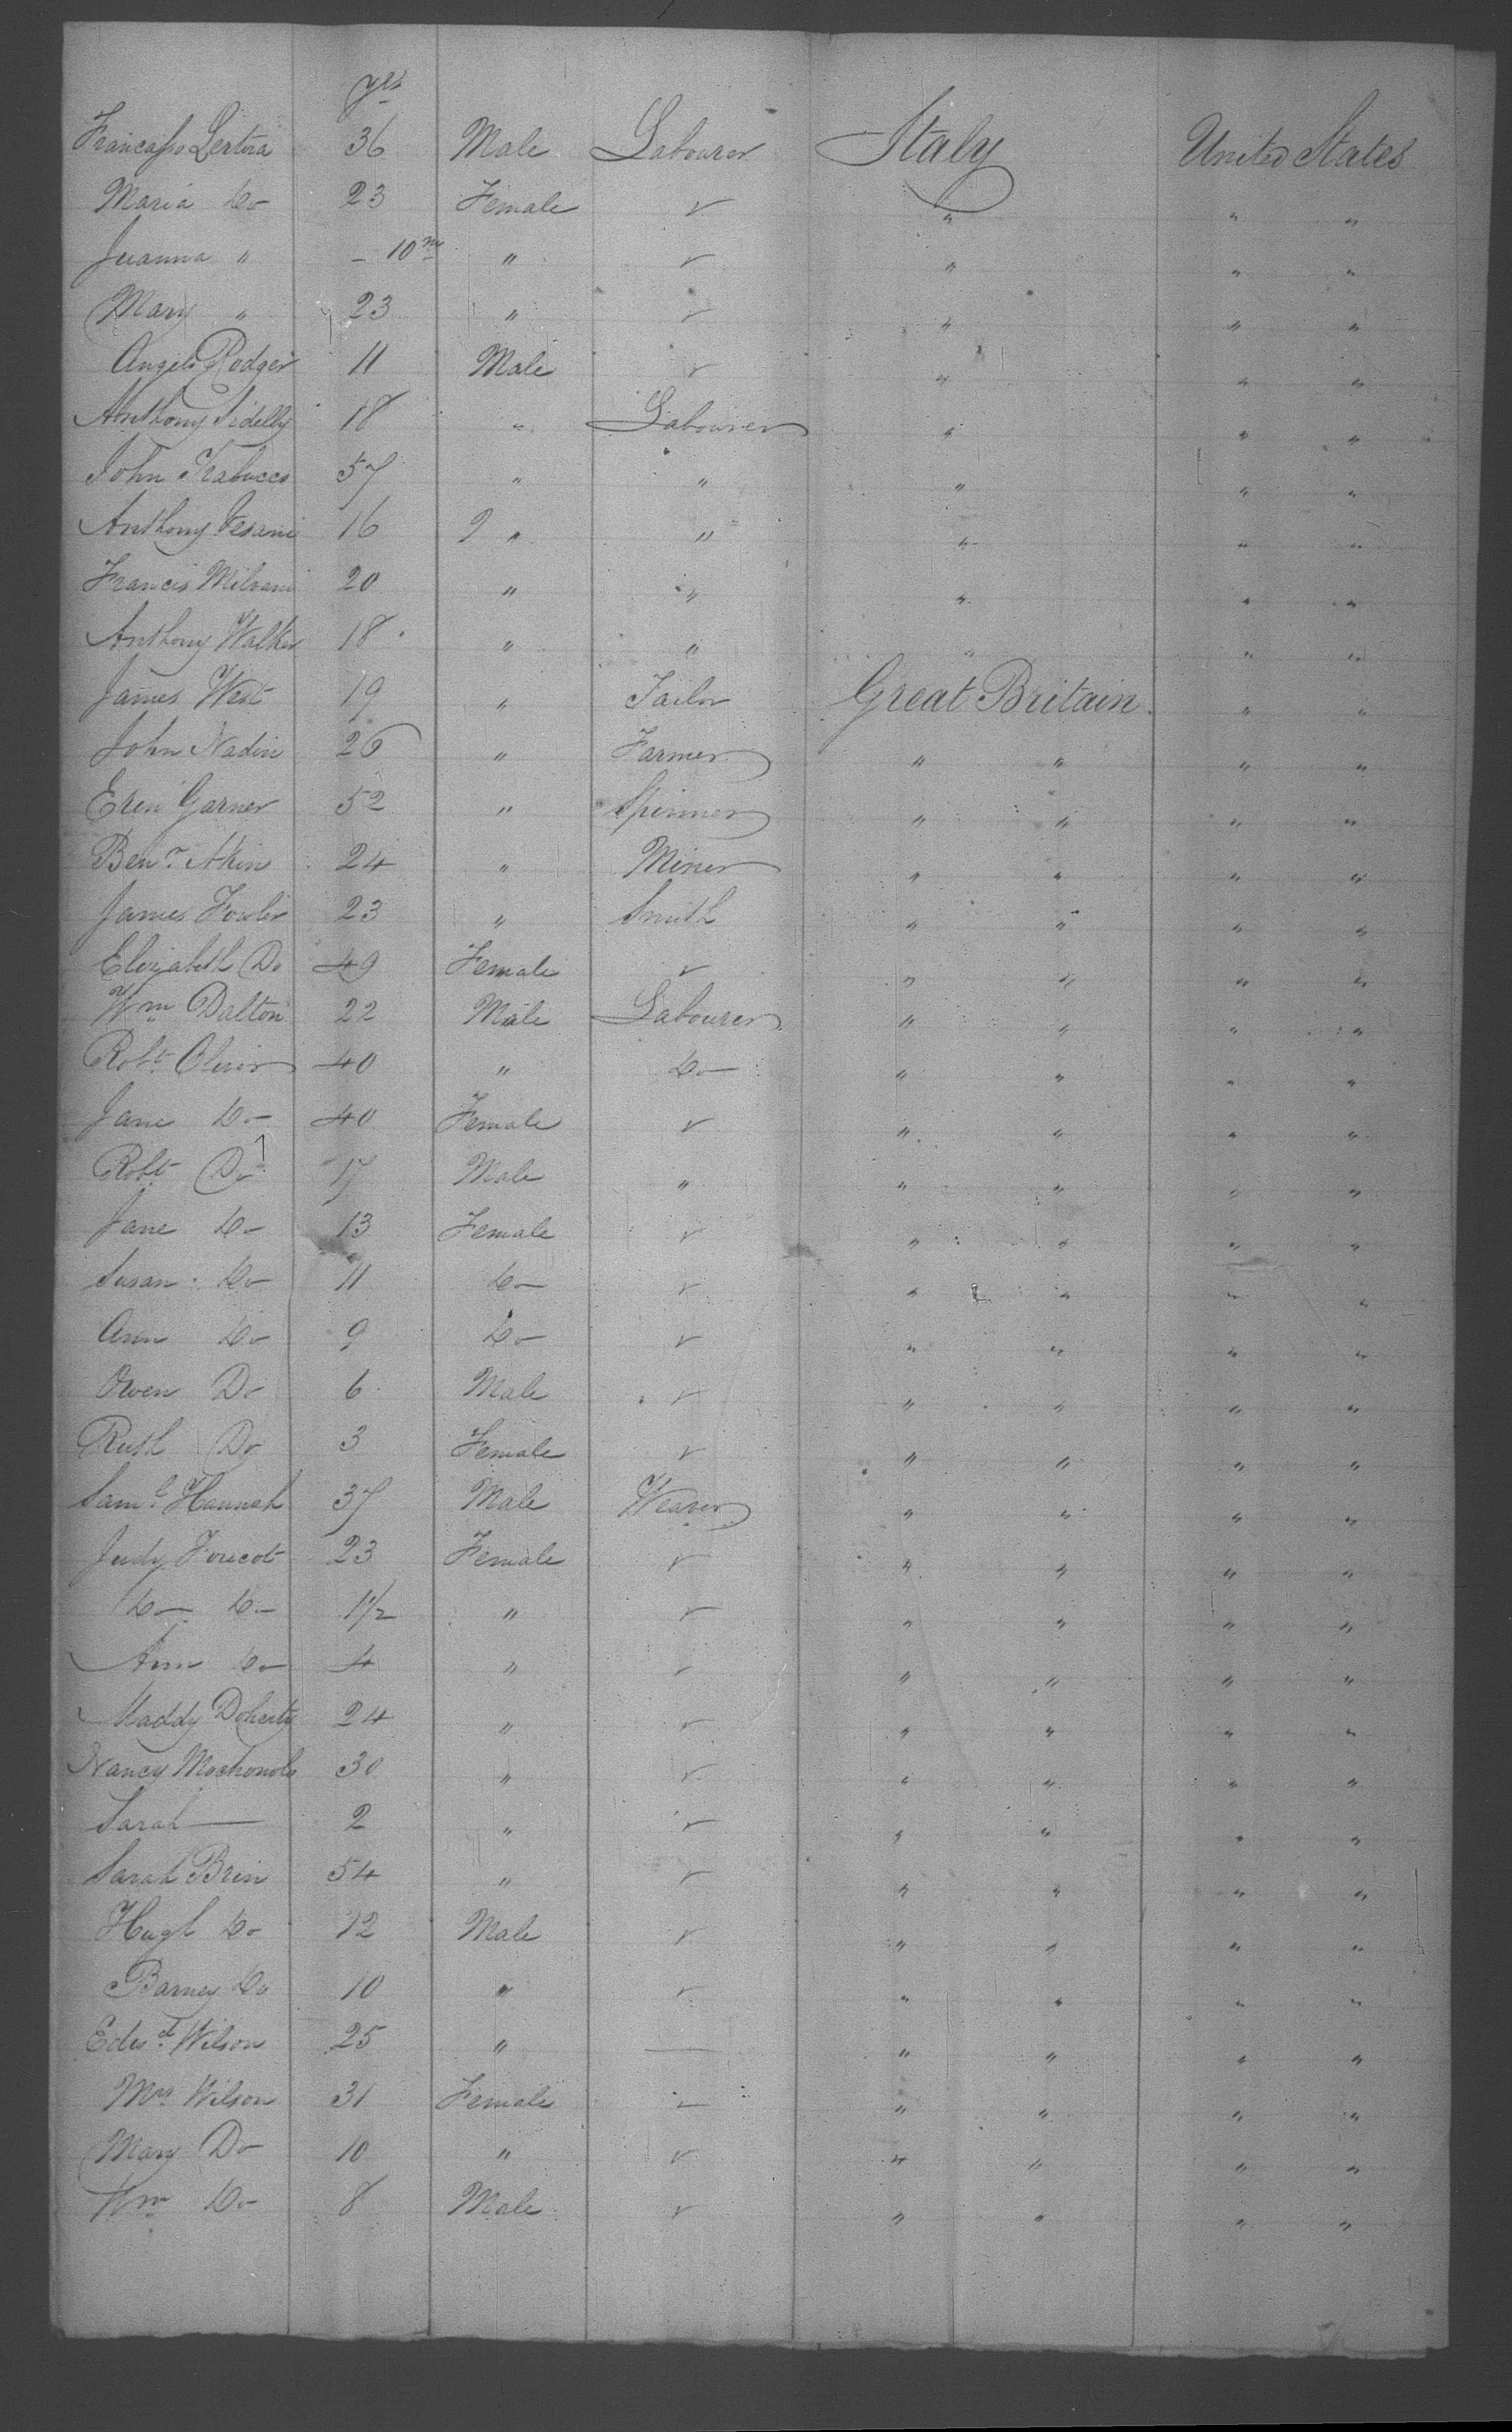 yrs
Francisco Lertora 36 Male Labourer Italy United States
Maria Do 23 Female " " "
Juanna " - 10 ms " " " "
Mary " 23 " " " "
Angelo Rodger 11 Male " " "
Anthony Sidelly 18 " Labourer " " "
John Trabucco 57 " " " " "
Anthony 16 " " " " "
Francis 20 " " " " "
Anthony Walker 18 " " " " "
James West 19 " Tailor Great Britain " "
John Nadin 26 " Farmer " " " "
Garner 52 " Spinner " " " "
Benr. Akin 24 " Miner " " " "
James Fowler 23 " Smith " " " "
Elizabeth Do 49 Female " " " "
Wm Dalton 22 Male Labourer " " " "
Robt. Oliver 40 " Do " " " "
Jane Do 40 Female " " " "
Robt Do 17 Male " " " " "
Jane Do 13 Female " " " "
Susan Do 11 Do " " " "
Ann Do 9 Do " " " "
Owen Do 6 Male " " " "
Ruth Do 3 Female " " " "
Saml. Hannah 37 Male Weaver " " " "
Judy 23 Female " " " "
Do Do 1 1/2 " " " " "
Ann Do 4 " " " " "
Maddy Doherty 24 " " " " "
Nancy 30 " " " " "
Sarah — 2 " " " " "
Sarah Brin 54 " " " " "
Hugh Do 12 Male " " " "
Barney Do 10 " " " " "
Edwd. Wilson 25 " — " " " "
Mrs Wilson 31 Female — " " " "
Mary Do 10 " " " " "
Wm Do 8 Male " " " "